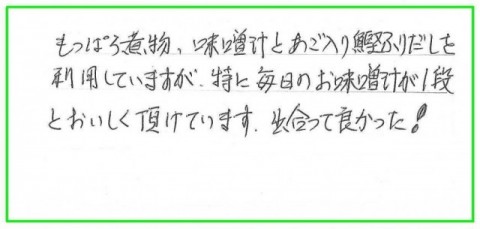 もっぱら煮物、味噌汁とあご入り鰹ふりだしを
利用していますが、特に毎日のお味噌汁が1段
とおいしく頂けています。出合って良かった!